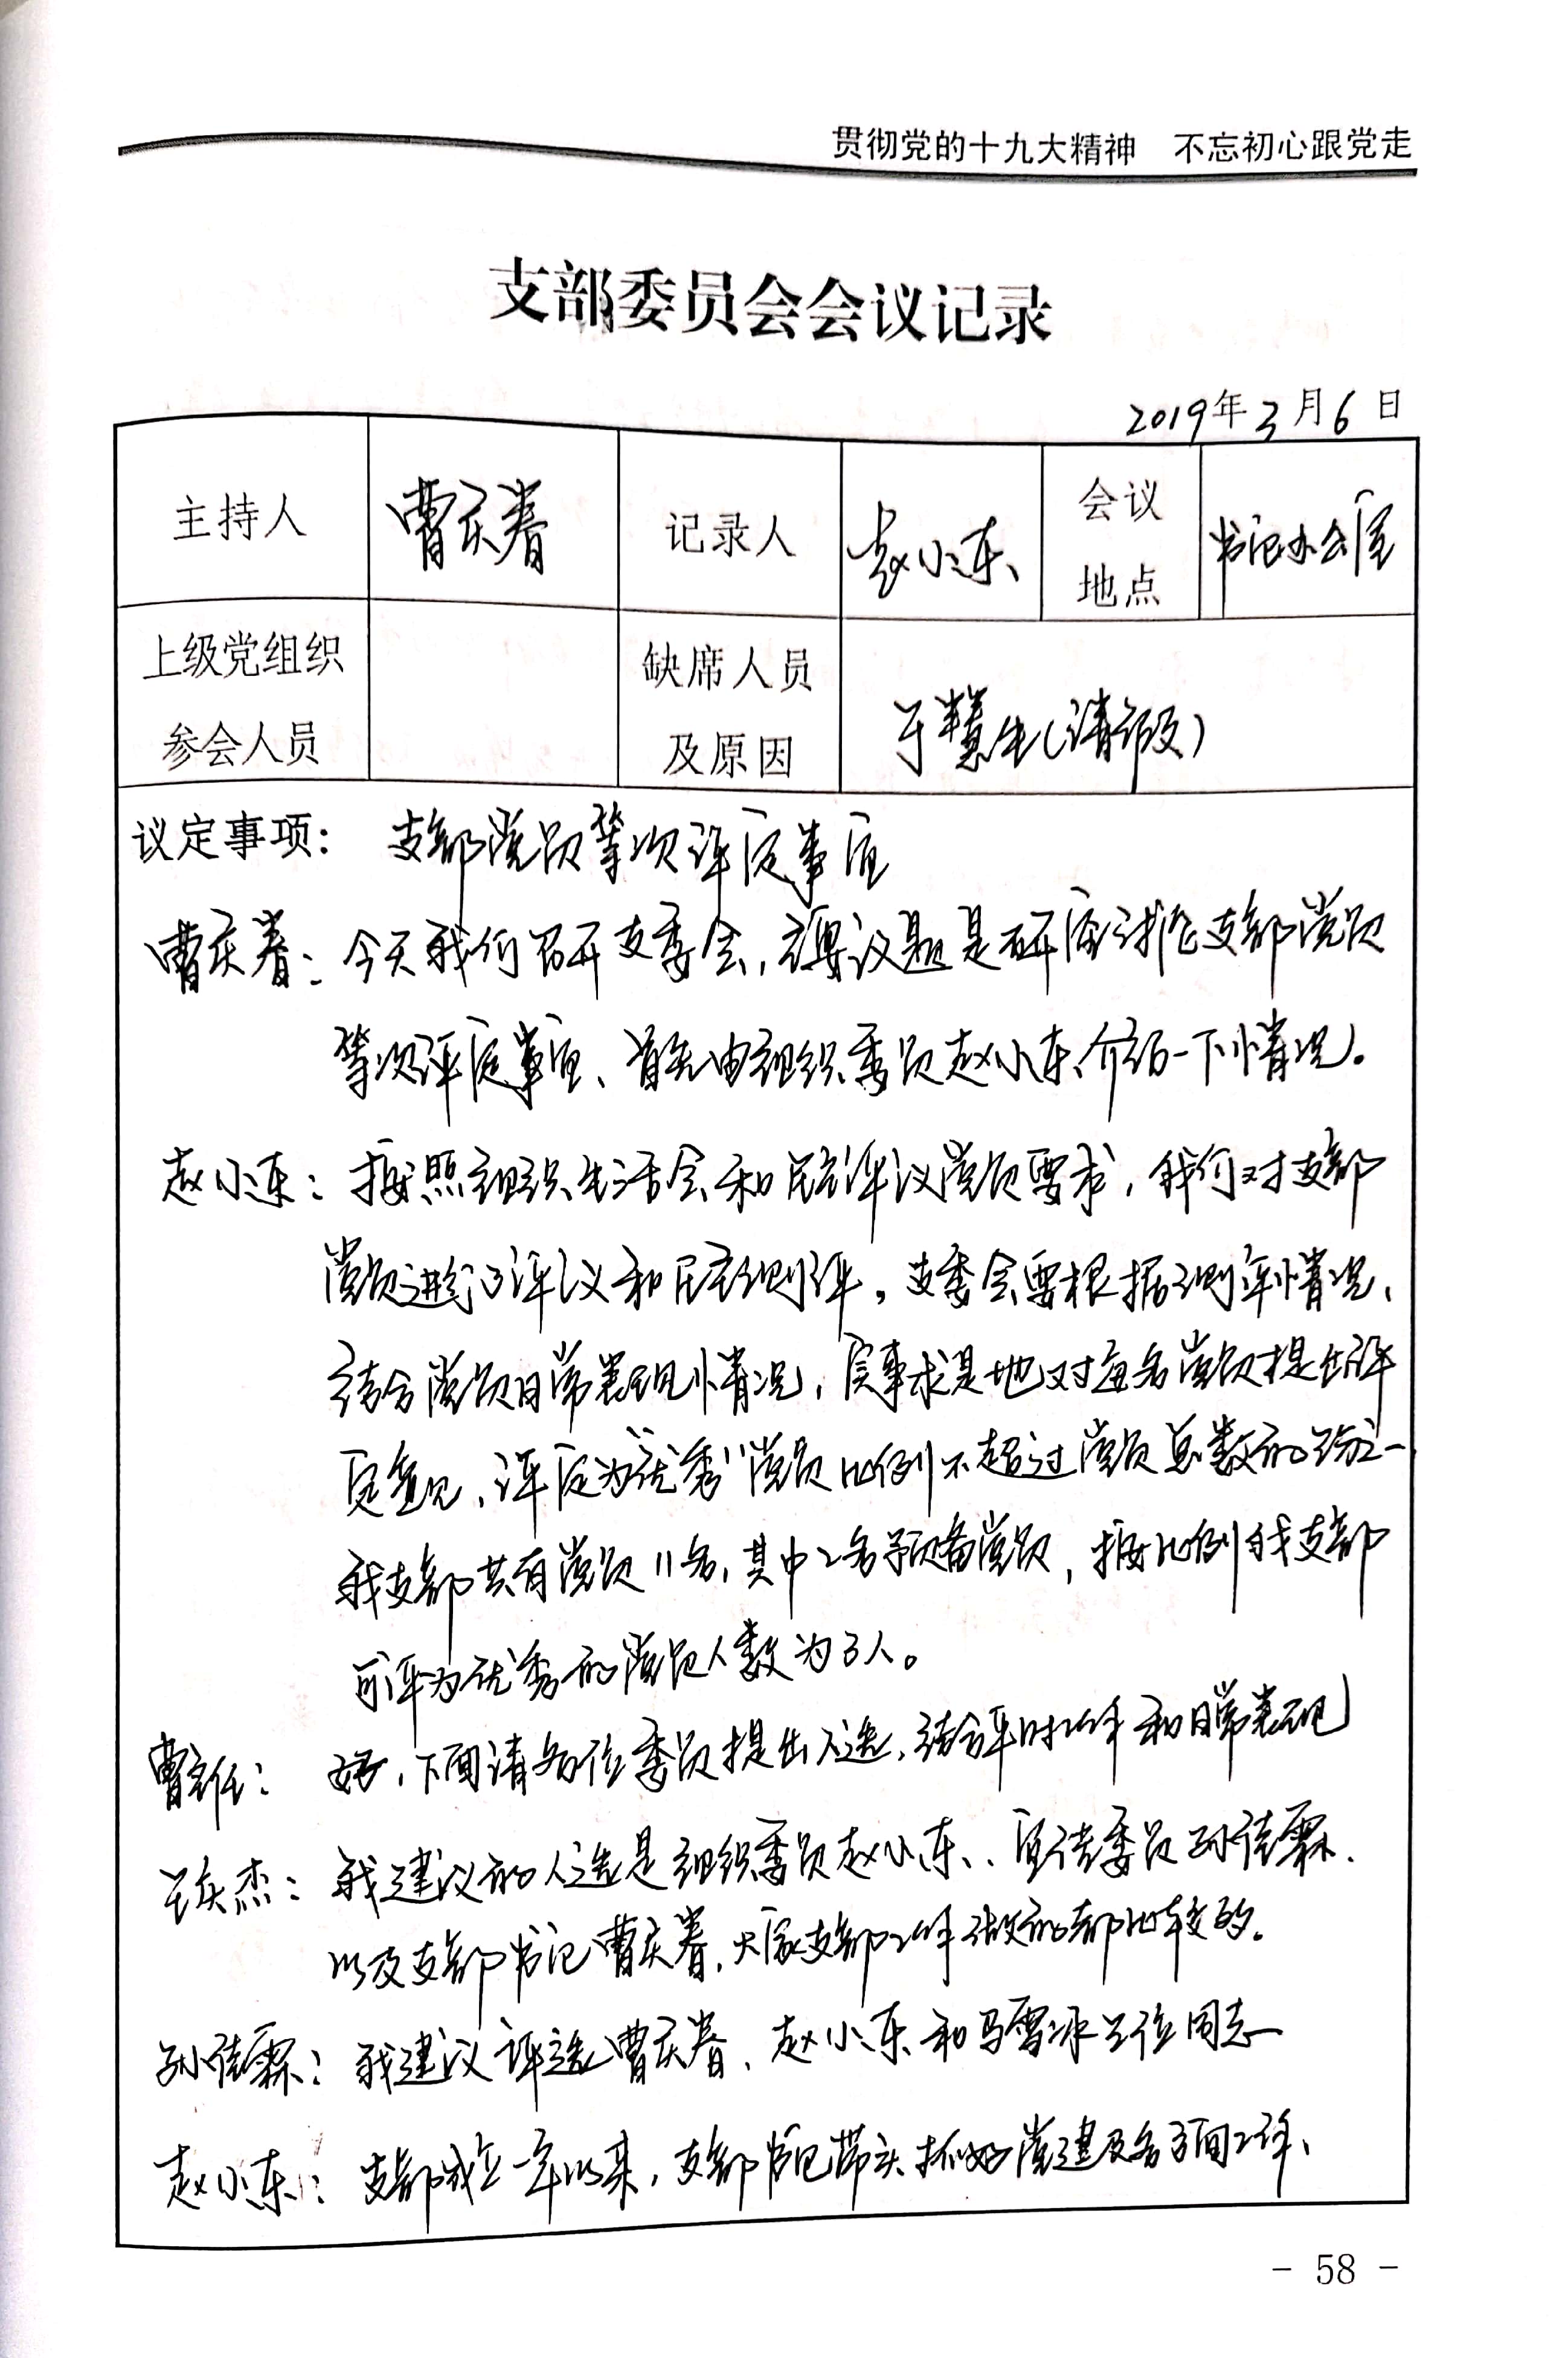 贯彻党的十九大精神　不忘初心跟党走
支部委员会会议记录
2019年3月6日
主持人 曹庆春 记录人 赵小东 会议地点 书记办公室
上级党组织参会人员 缺席人员及原因 于慧生(请假)
议定事项: 支部党员等次评定事宜
曹庆春: 今天我们召开支委会,主要议题是研究讨论支部党员
等次评定事宜、首先由组织委员赵小东介绍一下情况。
赵小东: 按照组织生活会和民主评议党员要求,我们对支部
党员进行了评议和民主测评。支委会要根据测评情况、
结合党员日常表现情况,实事求是地对每名党员提出评
定意见、评定为“优秀”党员比例不超过党员总数的三分之一
我支部共有党员11名,其中2名预备党员,按比例我支部
可评为优秀的党员人数为3人。
曹主任: 好,下面请各位委员提出人选、结合平时工作和日常表现
庆杰: 我建议的人选是组织委员赵小东、宣传委员孙佳霖、
以及支部书记曹庆春,大家支部工作做的都比较多。
孙佳霖: 我建议评选曹庆春、赵小东和马雪冰三位同志
赵小东: 支部成立一年以来,支部书记带头抓好党建及各方面工作、
- 58 -